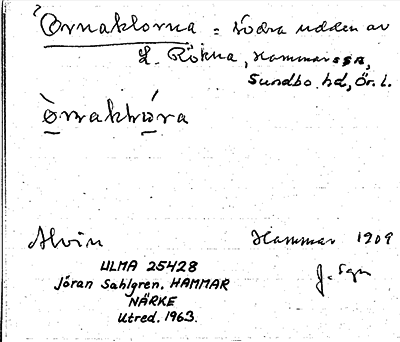 ?Ornaklorna = södra udden av
L. Rökna, Hammar ssn,
Sundbo hd, Ör. l.
Alvin Hammar 1909
ULMA 25428
Jöran Sahlgren. HAMMAR
NÄRKE
Utred. 1963.